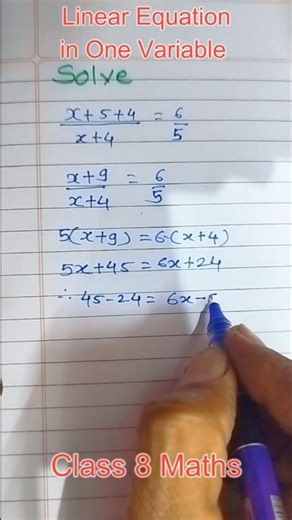 Linear Equation
in One Variable
Solve
x+5+4/x+4 = 6/5
x+9/x+4 = 6/5
5(x+9) = 6(x+4)
5x+45 = 6x+24
∴ 45-24 = 6x-
Class 8 Maths